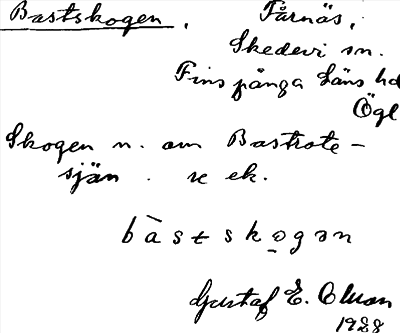 Bastskogen, Tärnäs,
Skedevi sn.
Finspånga Läns hd
Ögl
Skogen n. om Bastrote-
sjän. se ek.
bàstskogən
Gustaf E. Olson
1928